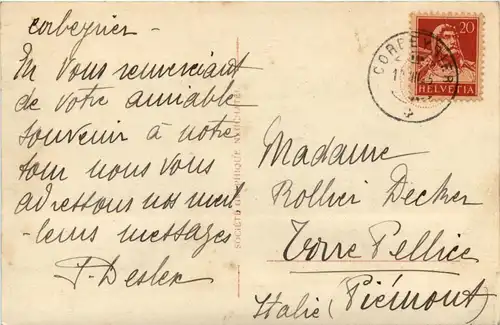 Corbeyrier -
En vous remerciant
de votre aimable
souvenir à notre
tour nous vous
adressons nos meil
-leurs messages
Madame
Rollier Decker
Torre Pellice
Italie (Piémont)
20
HELVETIA
CORBEYRIER